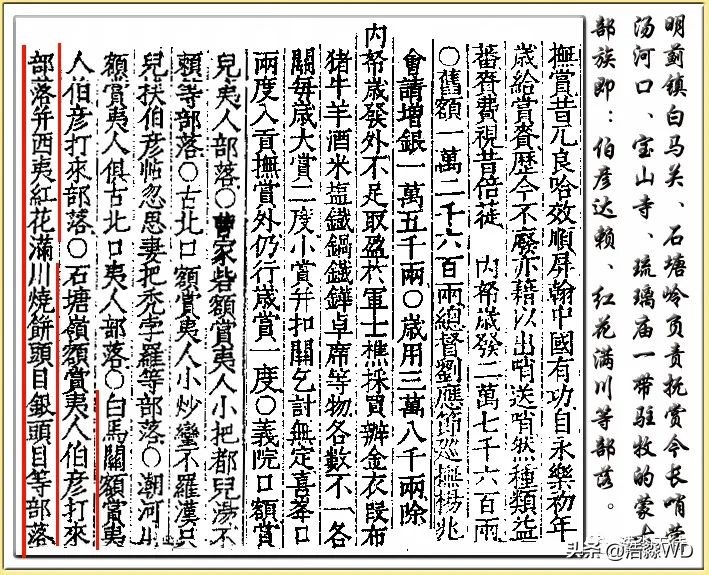 明蓟镇白马关、石塘岭负责抚赏今长哨营
汤河口、宝山寺、琉璃庙一带驻牧的蒙古
部族即：伯彦达赖、红花满川等部落。
撫賞昔兀良哈效順屏翰中國有功自永樂初年
歲給賞賚歷今不廢亦藉以出哨送哨然種類益
蕃賚費視昔倍徙 内帑歲發二萬七千六百兩
○舊額一萬二千六百兩總督劉應節巡撫楊兆
會請增銀一萬五千兩○歲用三萬八千兩除
内帑歲發外不足取盈於軍士樵採買辦金衣段布
猪牛羊酒米塩鐵鍋鐵鏵卓席等物各數不一各
關每歲大賞二度小賞并扣關乞討無定喜峯口
兩度入貢撫賞外仍行歲賞一度○義院口額賞
兒夷人部落○曹家砦額賞夷人小把都兒湯不
賴等部落○古北口額賞夷人小炒蠻不羅漢只
兒扶伯彥帖忽思妻把禿孛羅等部落○潮河川
額賞夷人俱古北口夷人部落○白馬關額賞夷
人伯彥打來部落○石塘嶺額賞夷人伯彥打來
部落并西夷紅花滿川燒餅頭目銀頭目等部落
头条 @浩淼WD